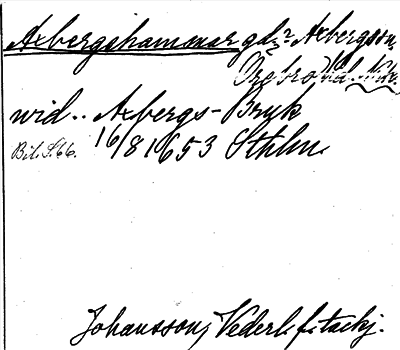 Axbergshammar gd i Axbergssn,
Örebro
wid.. Axbergs-Bruk
Bil. S. 66. 16/8 1653 Sthlm.
Johansson, Vederl. f. tackj.